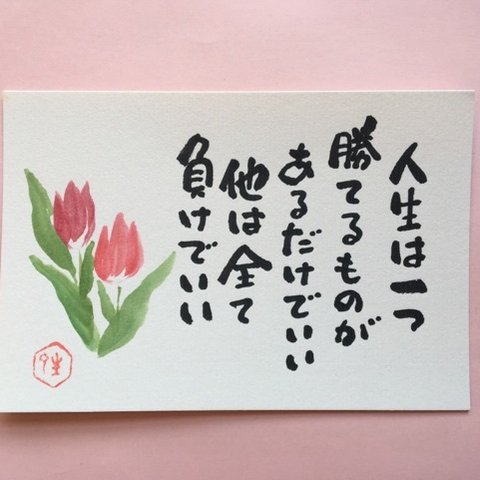 人生は一つ
勝てるものが
あるだけでいい
他は全て
負けでいい